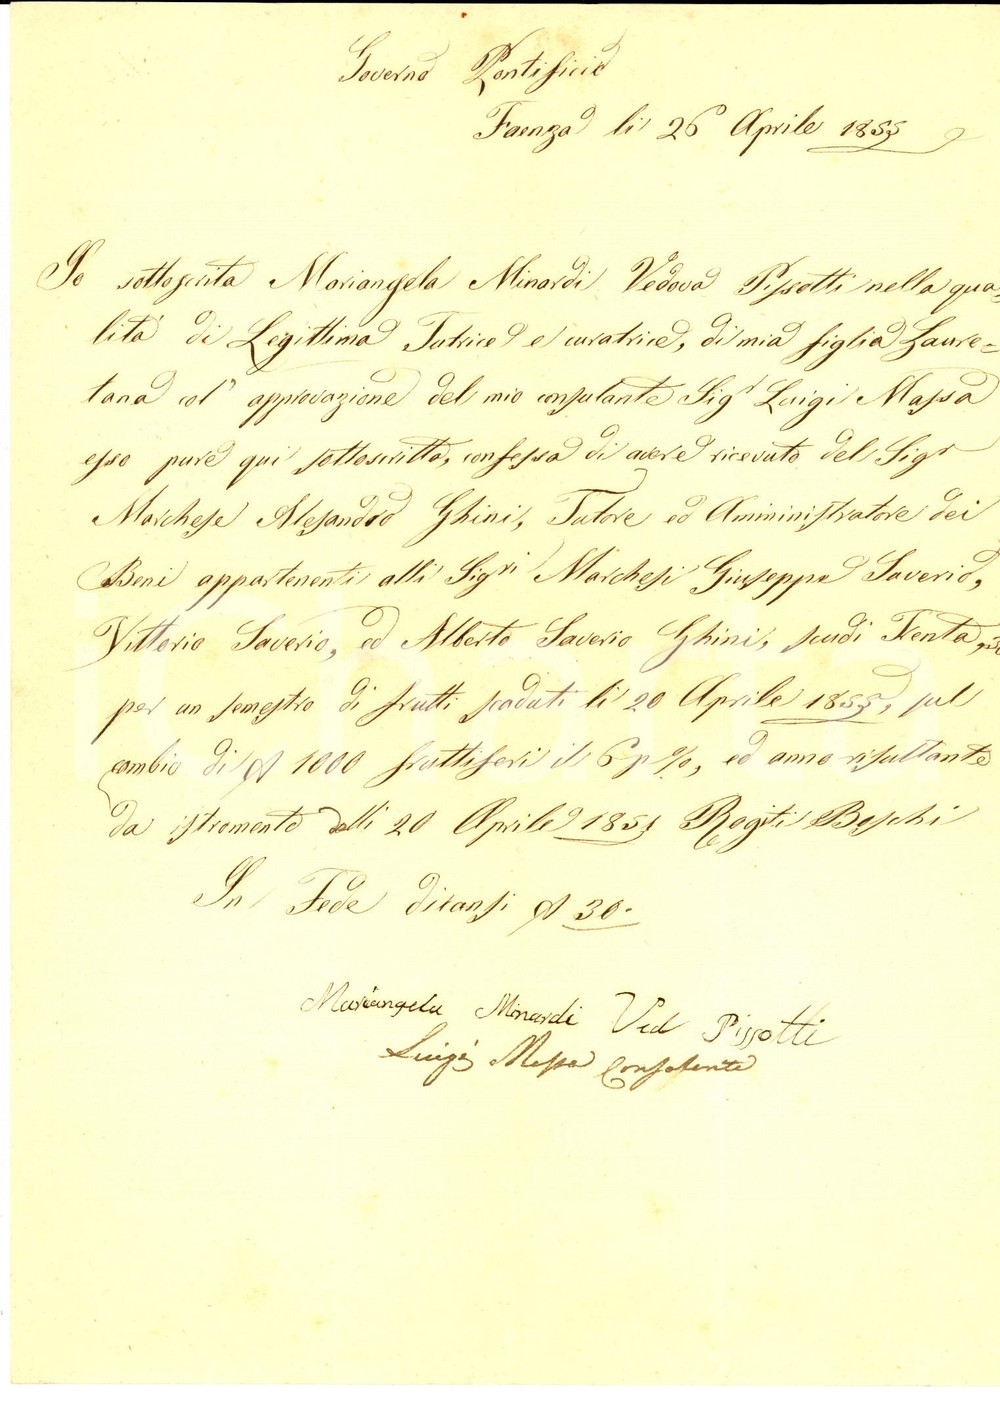 Governo Pontificio
Faenza li 26 Aprile 1855
Io sottoscritta Mariangela Minardi Vedova Pissotti nella qua=
lità di Legittima Tutrice e curatrice, di mia figlia Laure=
tana col' approvazione del mio consulente Sigr Luigi Massa
esso pure qui sottoscritto, confessa di avere ricevuto del Sigr
Marchese Alesandro Ghini, Tutore ed Amininistratore dei
Beni appartenenti alli Sigri Marchesi Giuseppe Saverio,
Vittorio Saverio, ed Alberto Saverio Ghini, scudi Trenta,
per un semestro di frutti scaduti li 20 Aprile 1855, sul
cambio di 1000 fruttiferi il 6 p%, ed anno risultante
da istromento delli 20 Aprile 1851 Rogiti Boschi
In Fede dicansi 30.
Mariangela Minardi Ved Pissotti
Luigi Massa Consulente